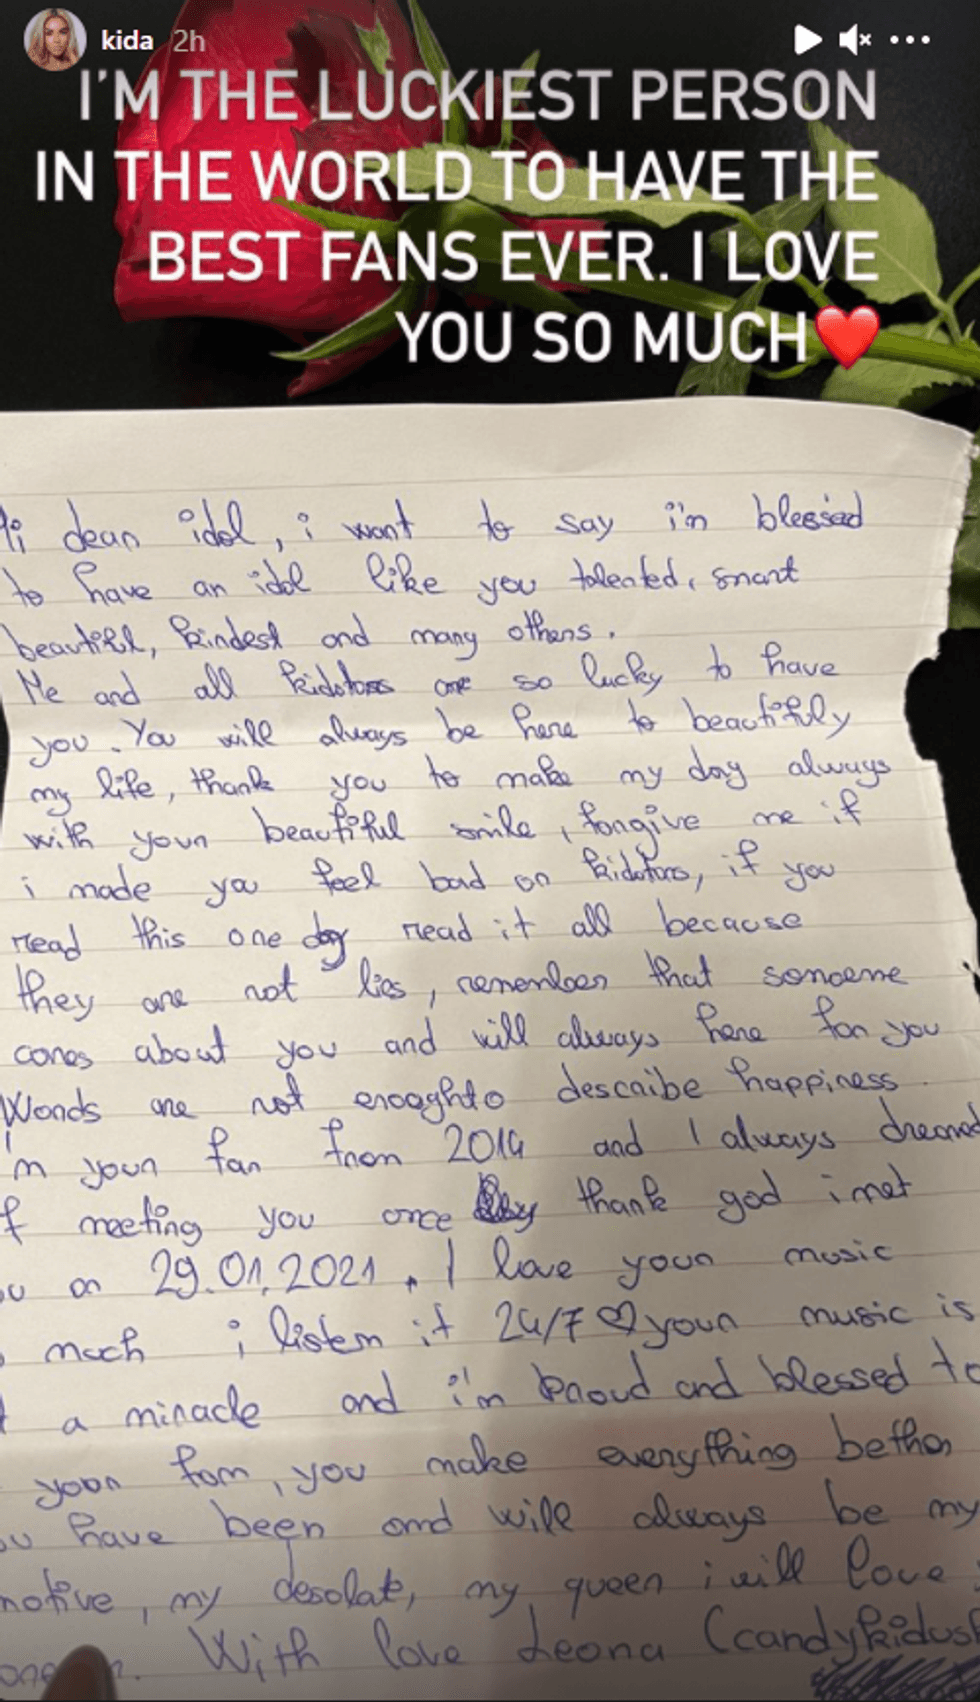 kida 2h
I'M THE LUCKIEST PERSON
IN THE WORLD TO HAVE THE
BEST FANS EVER. I LOVE
YOU SO MUCH❤️
Hi dear idol, i want to say i'm blessed
to have an idol like you talented, smart
beautiful, kindest and many others.
Me and all kidators are so lucky to have
you. You will always be here to beautifuly
my life, thank you to make my day always
with your beautiful smile, forgive me if
i made you feel bad or kidators, if you
read this one day read it all because
they are not lies, remember that someone
cares about you and will always here for you
Words are not enoughto describe happiness.
I'm your fan from 2014 and I always dreamed
of meeting you once thank god i met
you on 29.01.2021. I love your music
much i listen it 24/7 ♡ your music is
a miracle and i'm proud and blessed to
your fam, you make everything bether,
you have been and will always be my
motive, my desolate, my queen i will love
With love Leona (candykidush